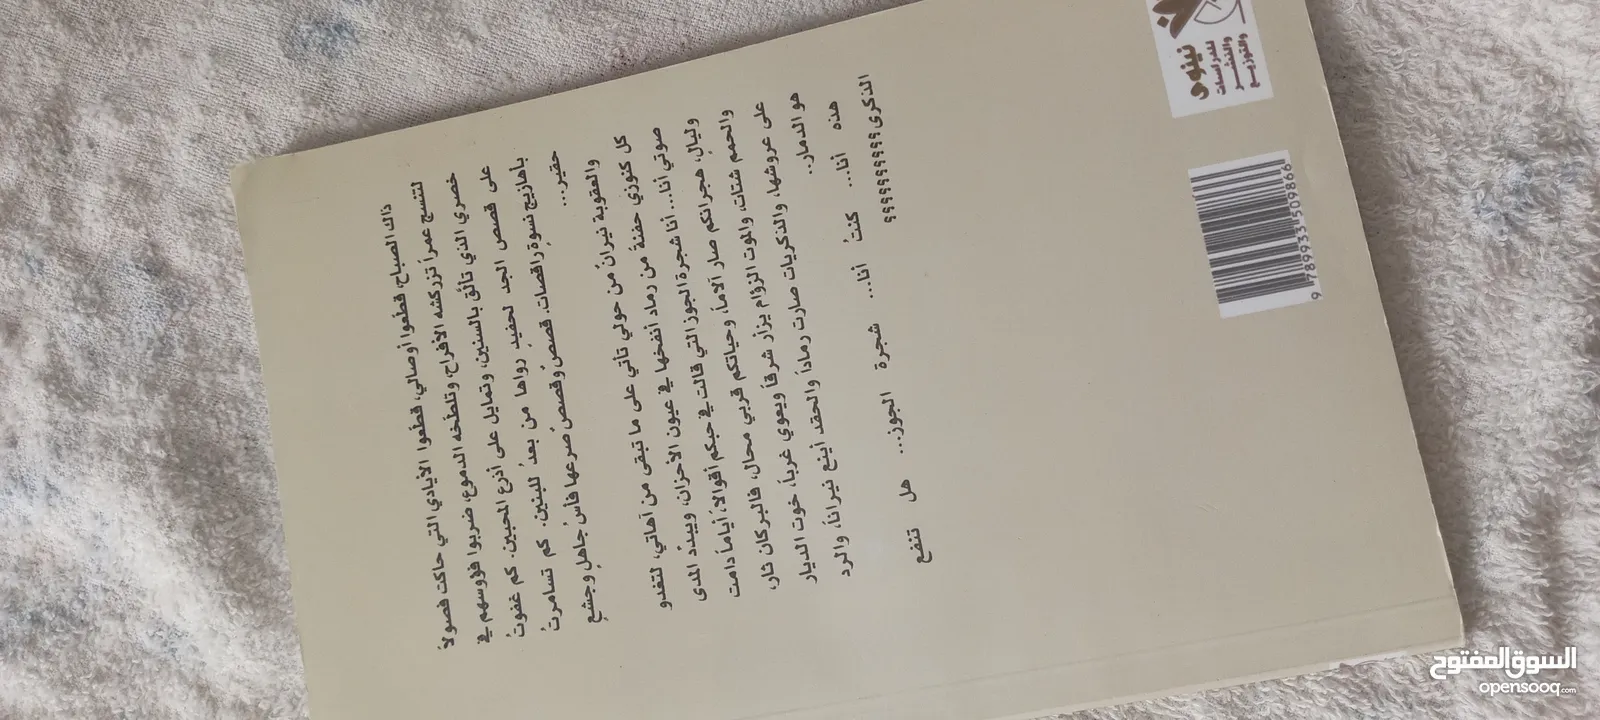 ذاك الصباح، قطعوا أوصالي، قطعوا الأيادي التي حاكت فصولاً
لتنسج عمراً تزركشه الأفراح، وتلطخه الدموع، ضربوا فؤوسهم في
خصري الذي تألق بالسنين، وتمايل على أذرع المحبين. كم غفوتُ
على قصص الجد لحفيدٍ رواها من بعدُ للبنين. كم تسامرتُ
بأهازيج نسوةٍ راقصات، قصصٌ وقصصٌ صرعها فأسُ جاهلٍ وجشعٍ
حقير...
والعقوبة نيرانٌ من حولي تأتي على ما تبقى من آهاتي، لتغدو
كل كنوزي حفنةً من رماد أنفخها في عيون الأحزان، ويبددُ المدى
صوتي أنا... أنا شجرة الجوز التي قالت في حبكم أقوالاً، أياماً دامت
وليال، هجرانكم صار آلاماً، وحياتكم قربي محال، فالبركان ثار،
والحمم شتات، والموت الزؤام يزأر شرقاً ويعوي غرباً، خوت الديار
على عروشها، والذكريات صارت رماداً والحقد أينع نيراناً، والرد
هو الدمار..
هذه أنا... كنتُ أنا... شجرة الجوز... هل تنفع
الذكرى ؟؟؟؟؟؟؟؟؟
نينوى
للدراسات
والنشر
والتوزيع
9 789933 509866
السوق المفتوح
opensooq.com